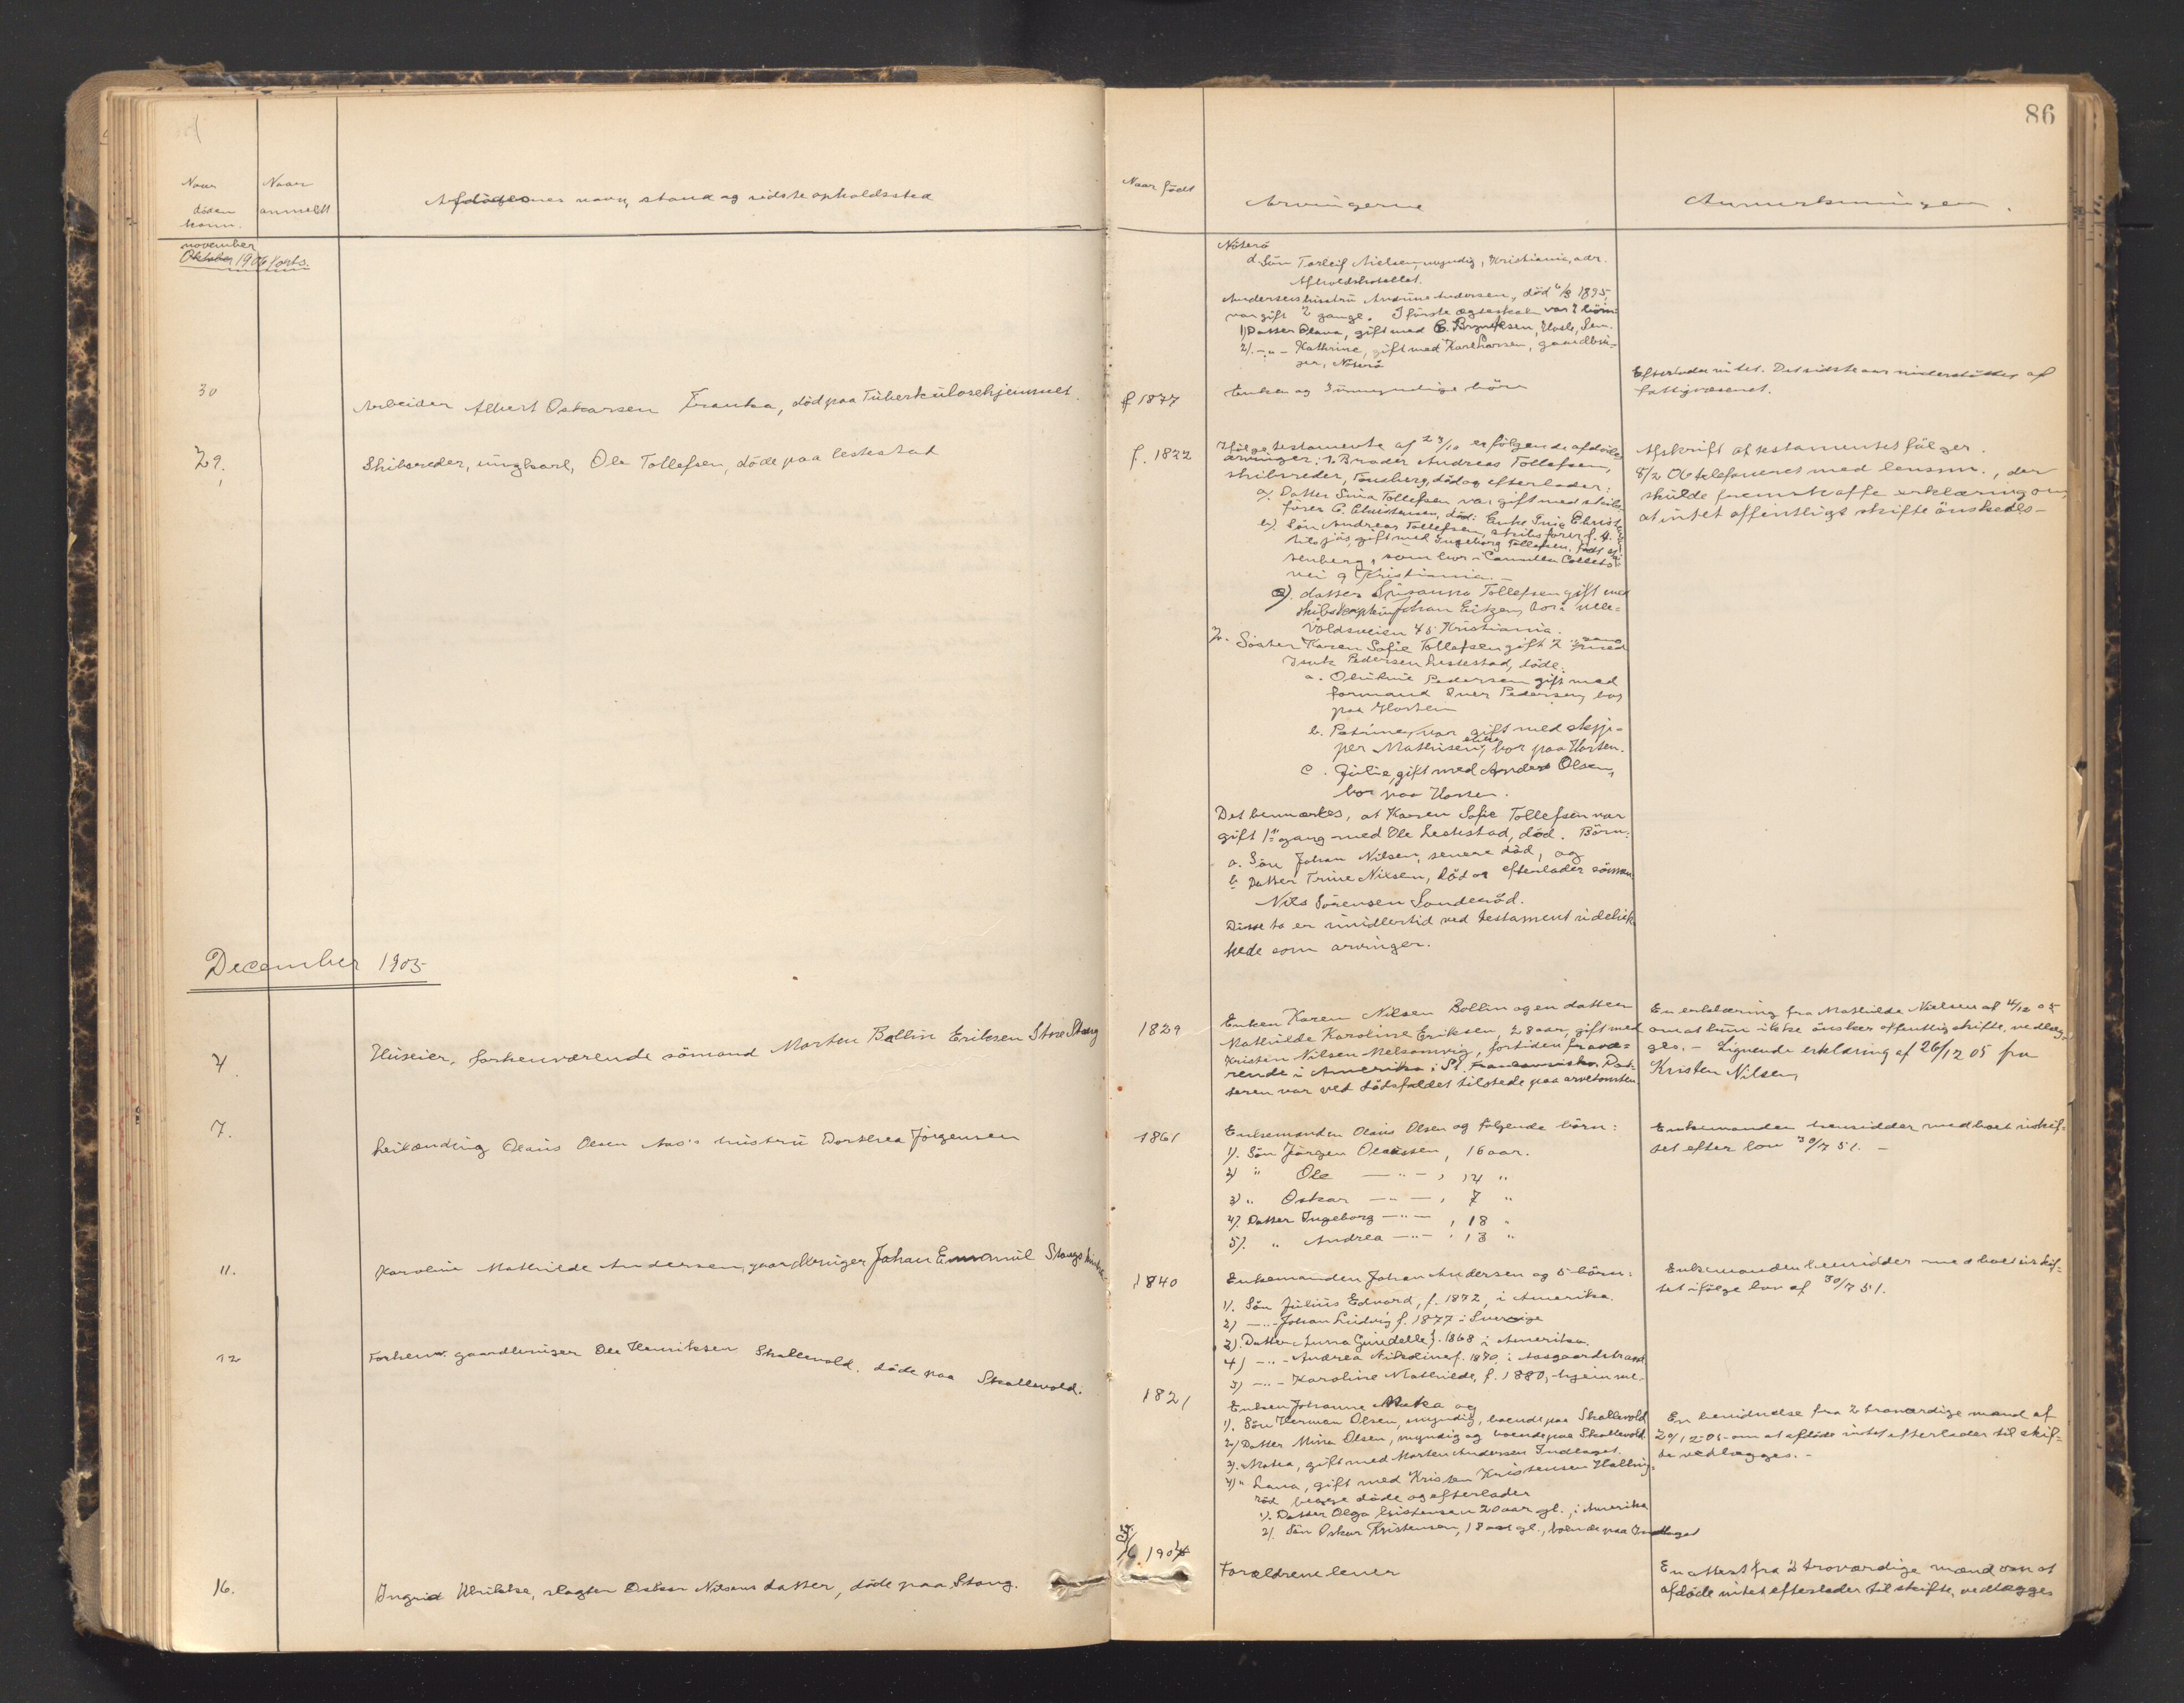 86
Naar döden kom.
Naar anmeldt
Afdödes navn, stand og sidste opholdssted
Naar född
Arvingerne
Anmerkninger.
november
Oktober 1906 forts.
Nöterö
d. Sön Torleif Nielsen, myndig, Kristiania, adr.
Afholdshotellet.
Andersens hustru Andrine Andersen, död 1895,
var gift 2 gange. I förste ægteskab var 2 börn:
1) Datter Olava, gift med E. Bryniksen, Hasle, Sem.
2). -"- Kathrine, gift med Karl Larsen, gaardbru-
ger, Nöterö
30
Arbeider Albert Oskarsen Franka, död paa Tüberkülosehjemmet.
f 1877
Enken og 3 umyndige börn
Efterlader intet. Det sidste aar understöttes af
fattigvæsenet.
29.
Skibsreder, ungkarl, Ole Tollefsen, döde paa Lestestad
f. 1822
Ifölge testamente af 23/10 er fölgende afdödes
arvinger: 1. Broder Andreas Tollefsen,
skibsreder, Tønsberg, död og efterlader:
a). Datter Sina Tollefsen var gift med skibs-
förer C. Christensen, död: Enke
b) Sön Andreas Tollefsen, skibsförer f. t.
tilsjös, gift med Ingeborg Tollefsen, född
senberg, som bor i Camilla Colletts
vei 9 Kristiania. -
c). datter Susanna Tollefsen gift med
skibskaptein Johan Eitzen, bor i Ulle-
voldsveien 45 Kristiania.
2. Söster Karen Sofie Tollefsen gift 2 gang med
Isak Pedersen Lestestad, döde.
a. Olufine Pedersen gift med
formand Iver Pedersen, bor
paa Horten
b. Petrine, var gift med skip-
per Mathisen, enke, bor paa Horten.
c. Julie, gift med Anders Olsen,
bor paa Horten.
Det bemærkes, at Karen Sofie Tollefsen var
gift 1ste gang med Ole Lestestad, död. Börn:
a. Sön Johan Nilsen, senere död, og
b. Datter Trine Nilsen, död og efterlader sönnen
Nils Sörensen Sanderöd.
Disse to er imidlertid ved testament udeluk
kede som arvinger.
Afskrift af testamentet fölger.
8/2 06 telefoneret med lensm., der
skulde fremskaffe erklæring om,
at intet offentligt skifte önskedes -
December 1905
4.
Huseier, forhenværende sömand Morten Bollin Eriksen Store Stang
1829
Enken Karen Nilsen Bollin og en datter
Mathilde Karoline Eriksen, 28 aar, gift med
Kristen Nilsen Melsomvig, fortiden fravæ-
rende i Amerika i St. Franscisko. Dat-
teren var ved dödsfaldet tilstede paa arvetomten.
En erklæring fra Mathilde Nielsen af 4/12 05
om at hun ikke önsker offentlig skifte, vedlæg-
ges. - Lignende erklæring af 26/12 05 fra
Kristen Nilsen
7.
Leilænding Olaus Olsen Aas's hustru Dorthea Jörgensen
1861
Enkemanden Olaus Olsen og fölgende börn:
1). Sön Jörgen Olaussen, 16 aar.
2) " Ole -"-, 14 "
3) " Oskar -"-, 7 "
4). Datter Ingeborg -"-, 18 "
5). " Andrea -"-, 13 "
Enkemanden hensidder med boet uskif-
tet efter lov 30/7 51. -
11.
Karoline Mathilde Andersen, gaardbruger Johan Emanuel Stangs hustru
1840
Enkemanden Johan Andersen og 5 börn:
1). Sön Julius Edvard, f. 1872, i Amerika.
2) -"- Johan Ludvig f. 1877 i Sverige
3). Datter Anna Gunelle f. 1868 i Amerika.
4) -"- Andrea Nikoline f. 1870 i Aasgaardstrand
5) -"- Karoline Mathilde, f. 1880, hjemme.
Enkemanden hensidder med boet uskif-
tet ifölge lov af 30/7 51.
12
Forhenv. gaardbruger Ole Henriksen Skallevold. döde paa Skallevold.
1821
Enken Johanne Maka og
1). Sön Herman Olsen, myndig, boende paa Skallevold
2) Datter Mina Olsen, myndig og boende paa Skallevold
3). Maka, gift med Morten Andersen Indlaget.
4) " Lava, gift med Kristen Kristensen Halling-
röd begge döde og efterlader
1). Datter Olga Kristensen 20 aar gl., i Amerika
2). Sön Oskar Kristensen, 18 aar gl., boende paa Indlaget
En bevidnelse fra 2 troværdige mænd af
20/12-05 om at afdöde intet efterlader til skif-
te vedlægges. -
16.
Ingrid Ulrikke, slagter Oskar Nilsens datter, döde paa Stang.
/6 1904
Forældrene lever
En attest fra 2 troværdige mænd om at
afdöde intet efterlader til skifte, vedlægges